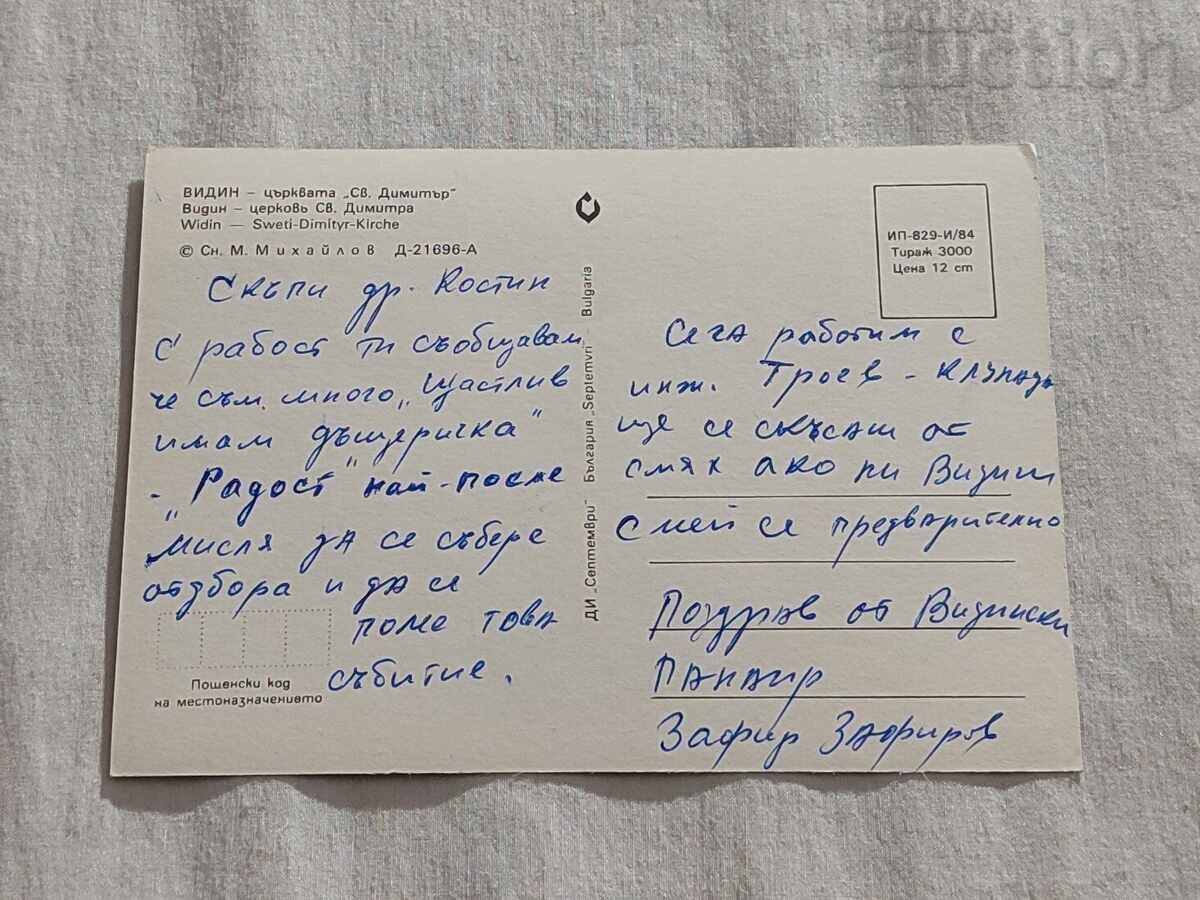 ВИДИН – църквата „Св. Димитър"
Видин – церковь Св. Димитра
Widin — Sweti-Dimityr-Kirche
© Сн. М. Михайлов Д-21696-А
Скъпи др. Костин
С рабост ти съобщавам
че съм много „Щастлив
имам дъщеричка"
- „Радост" най-после
мисля да се събере
отбора и да се
поме това
събитие.
Пощенски код
на местоназначението
ДИ „Септември" България „Septemvri" - Bulgaria
ИП-829-И/84
Тираж 3000
Цена 12 ст
Сега работим с
инж. Троев -
ще се скъсаш от
смях ако ни видиш
смей се предварително
Поздрав от Видински
панаир
Зафир Зафиров